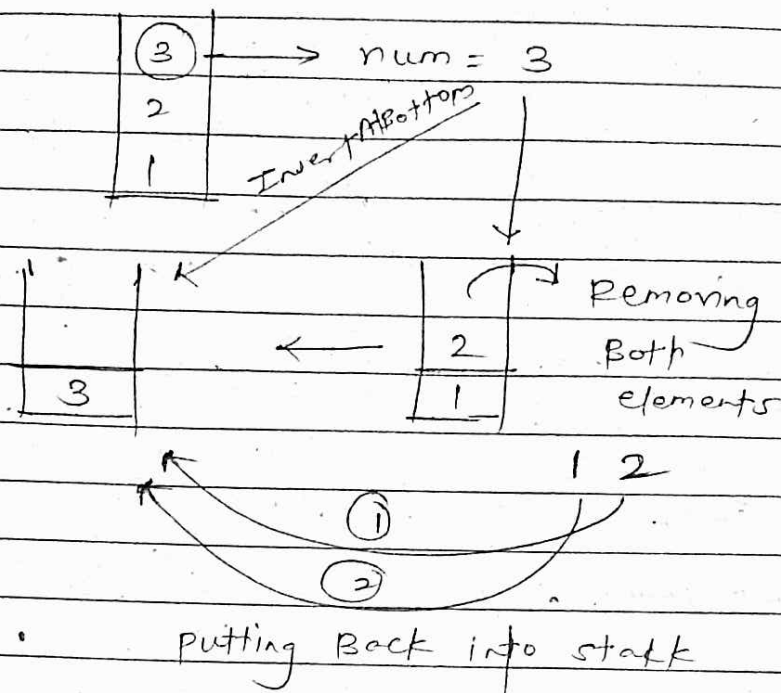 3 num = 3
2
1
InvertAtBottom
Removing
2 Both
3 1 elements
1 2
1
2
Putting Back into stakk